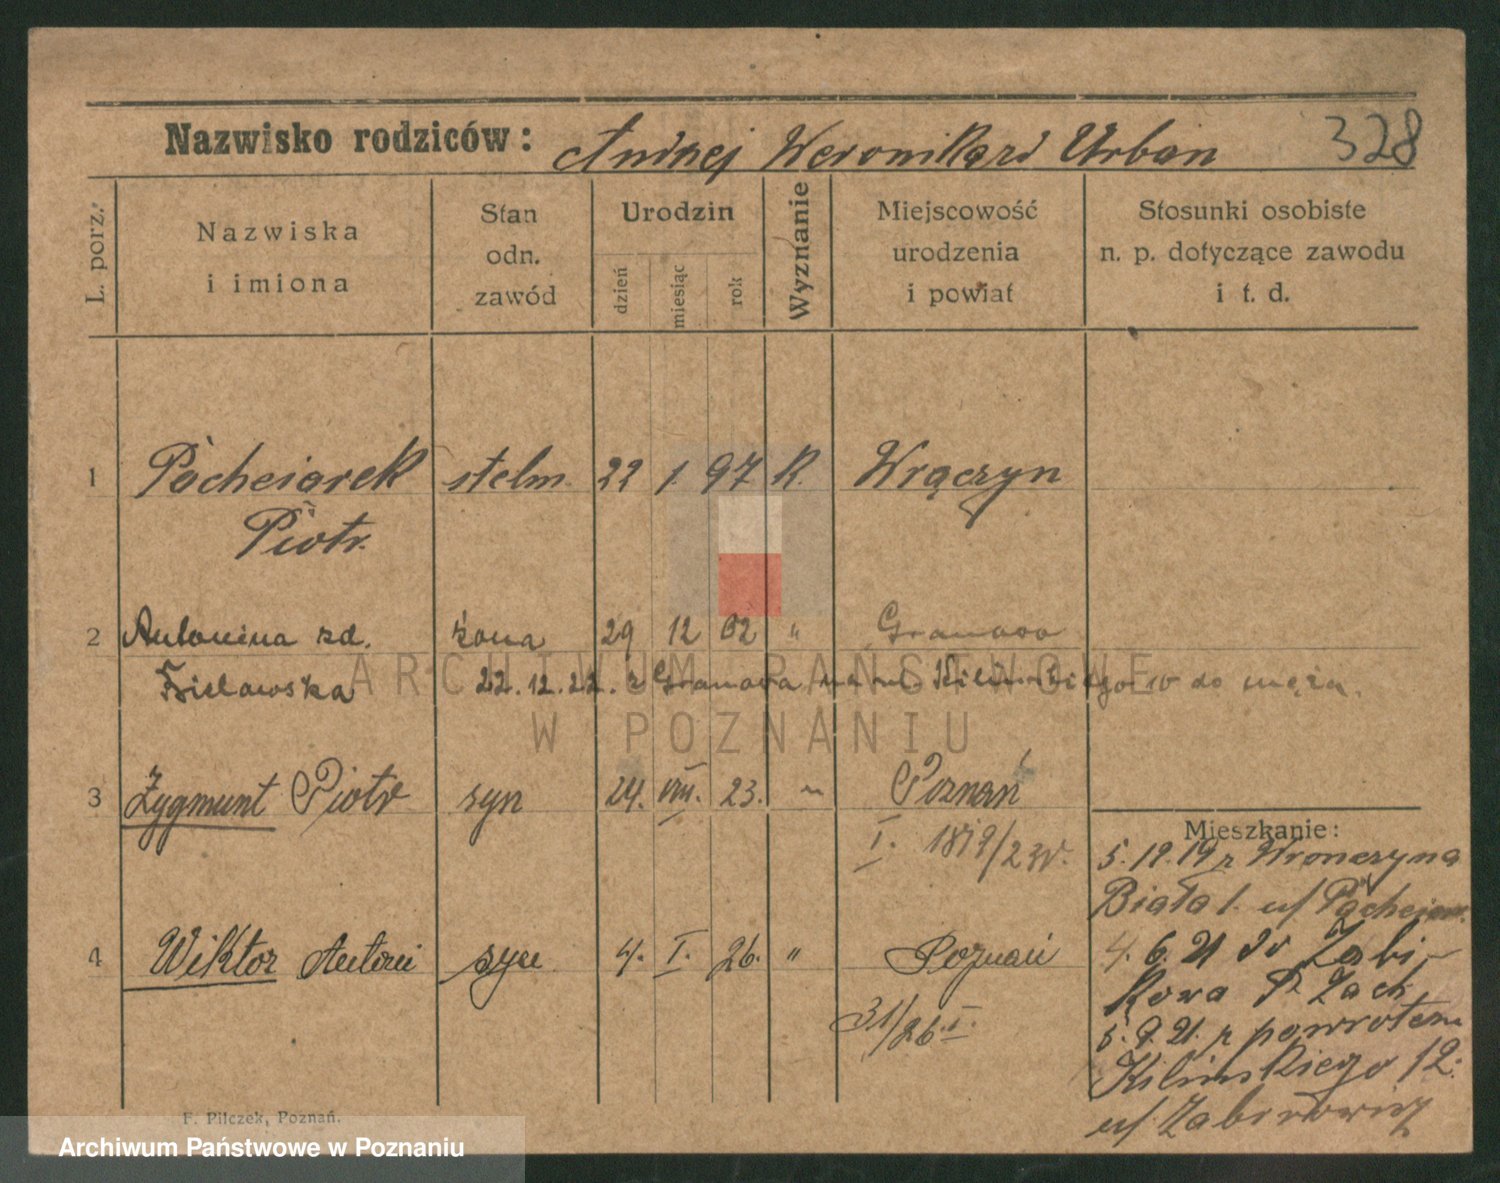 Nazwisko rodziców: Andrzej Weronika zd Urban 328
L. porz. Nazwiska i imiona Stan odn. zawód Urodzin dzień miesiąc rok Wyznanie Miejscowość urodzenia i powiat Stosunki osobiste n. p. dotyczące zawodu i t. d.
1 Pacheiarek stelm. 22 1. 97 R. Wrączyn
Piotr.
2 Antonina zd. żona 29 12 02 " Granowo
22.12.22. z Granowa na ul. Kilińskiego 10 do męża.
3 Zygmunt Piotr syn 24. VIII. 23. " Poznań
I. 1879/23
Mieszkanie:
5.12.19 z Wronczyna
Biała 1. u/
4 Wiktor Antoni syn 4. I. 26. " Poznań
31/26.I.
4.6.21 do Żabi-
kowa P. Zach
5.9.21. z powrotem
Kilinskiego 12.
u/
F. Pilczek, Poznań.
ARCHIWUM PAŃSTWOWE
W POZNANIU
Archiwum Państwowe w Poznaniu